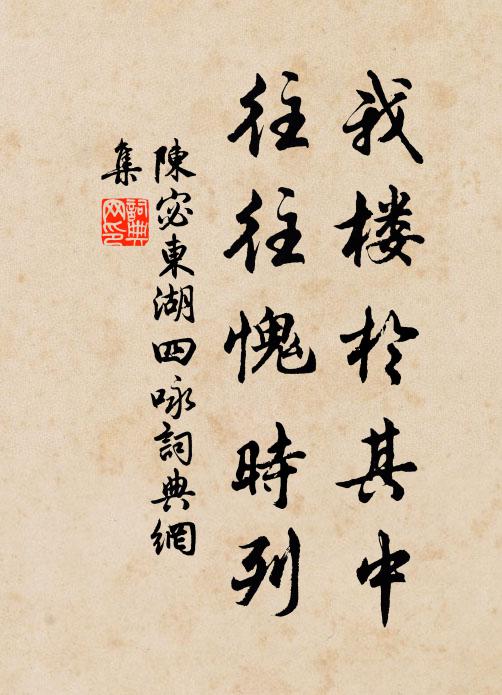 我楼於其中
往往愧時列
陳宓東湖四咏詞典網
集
詞典網印